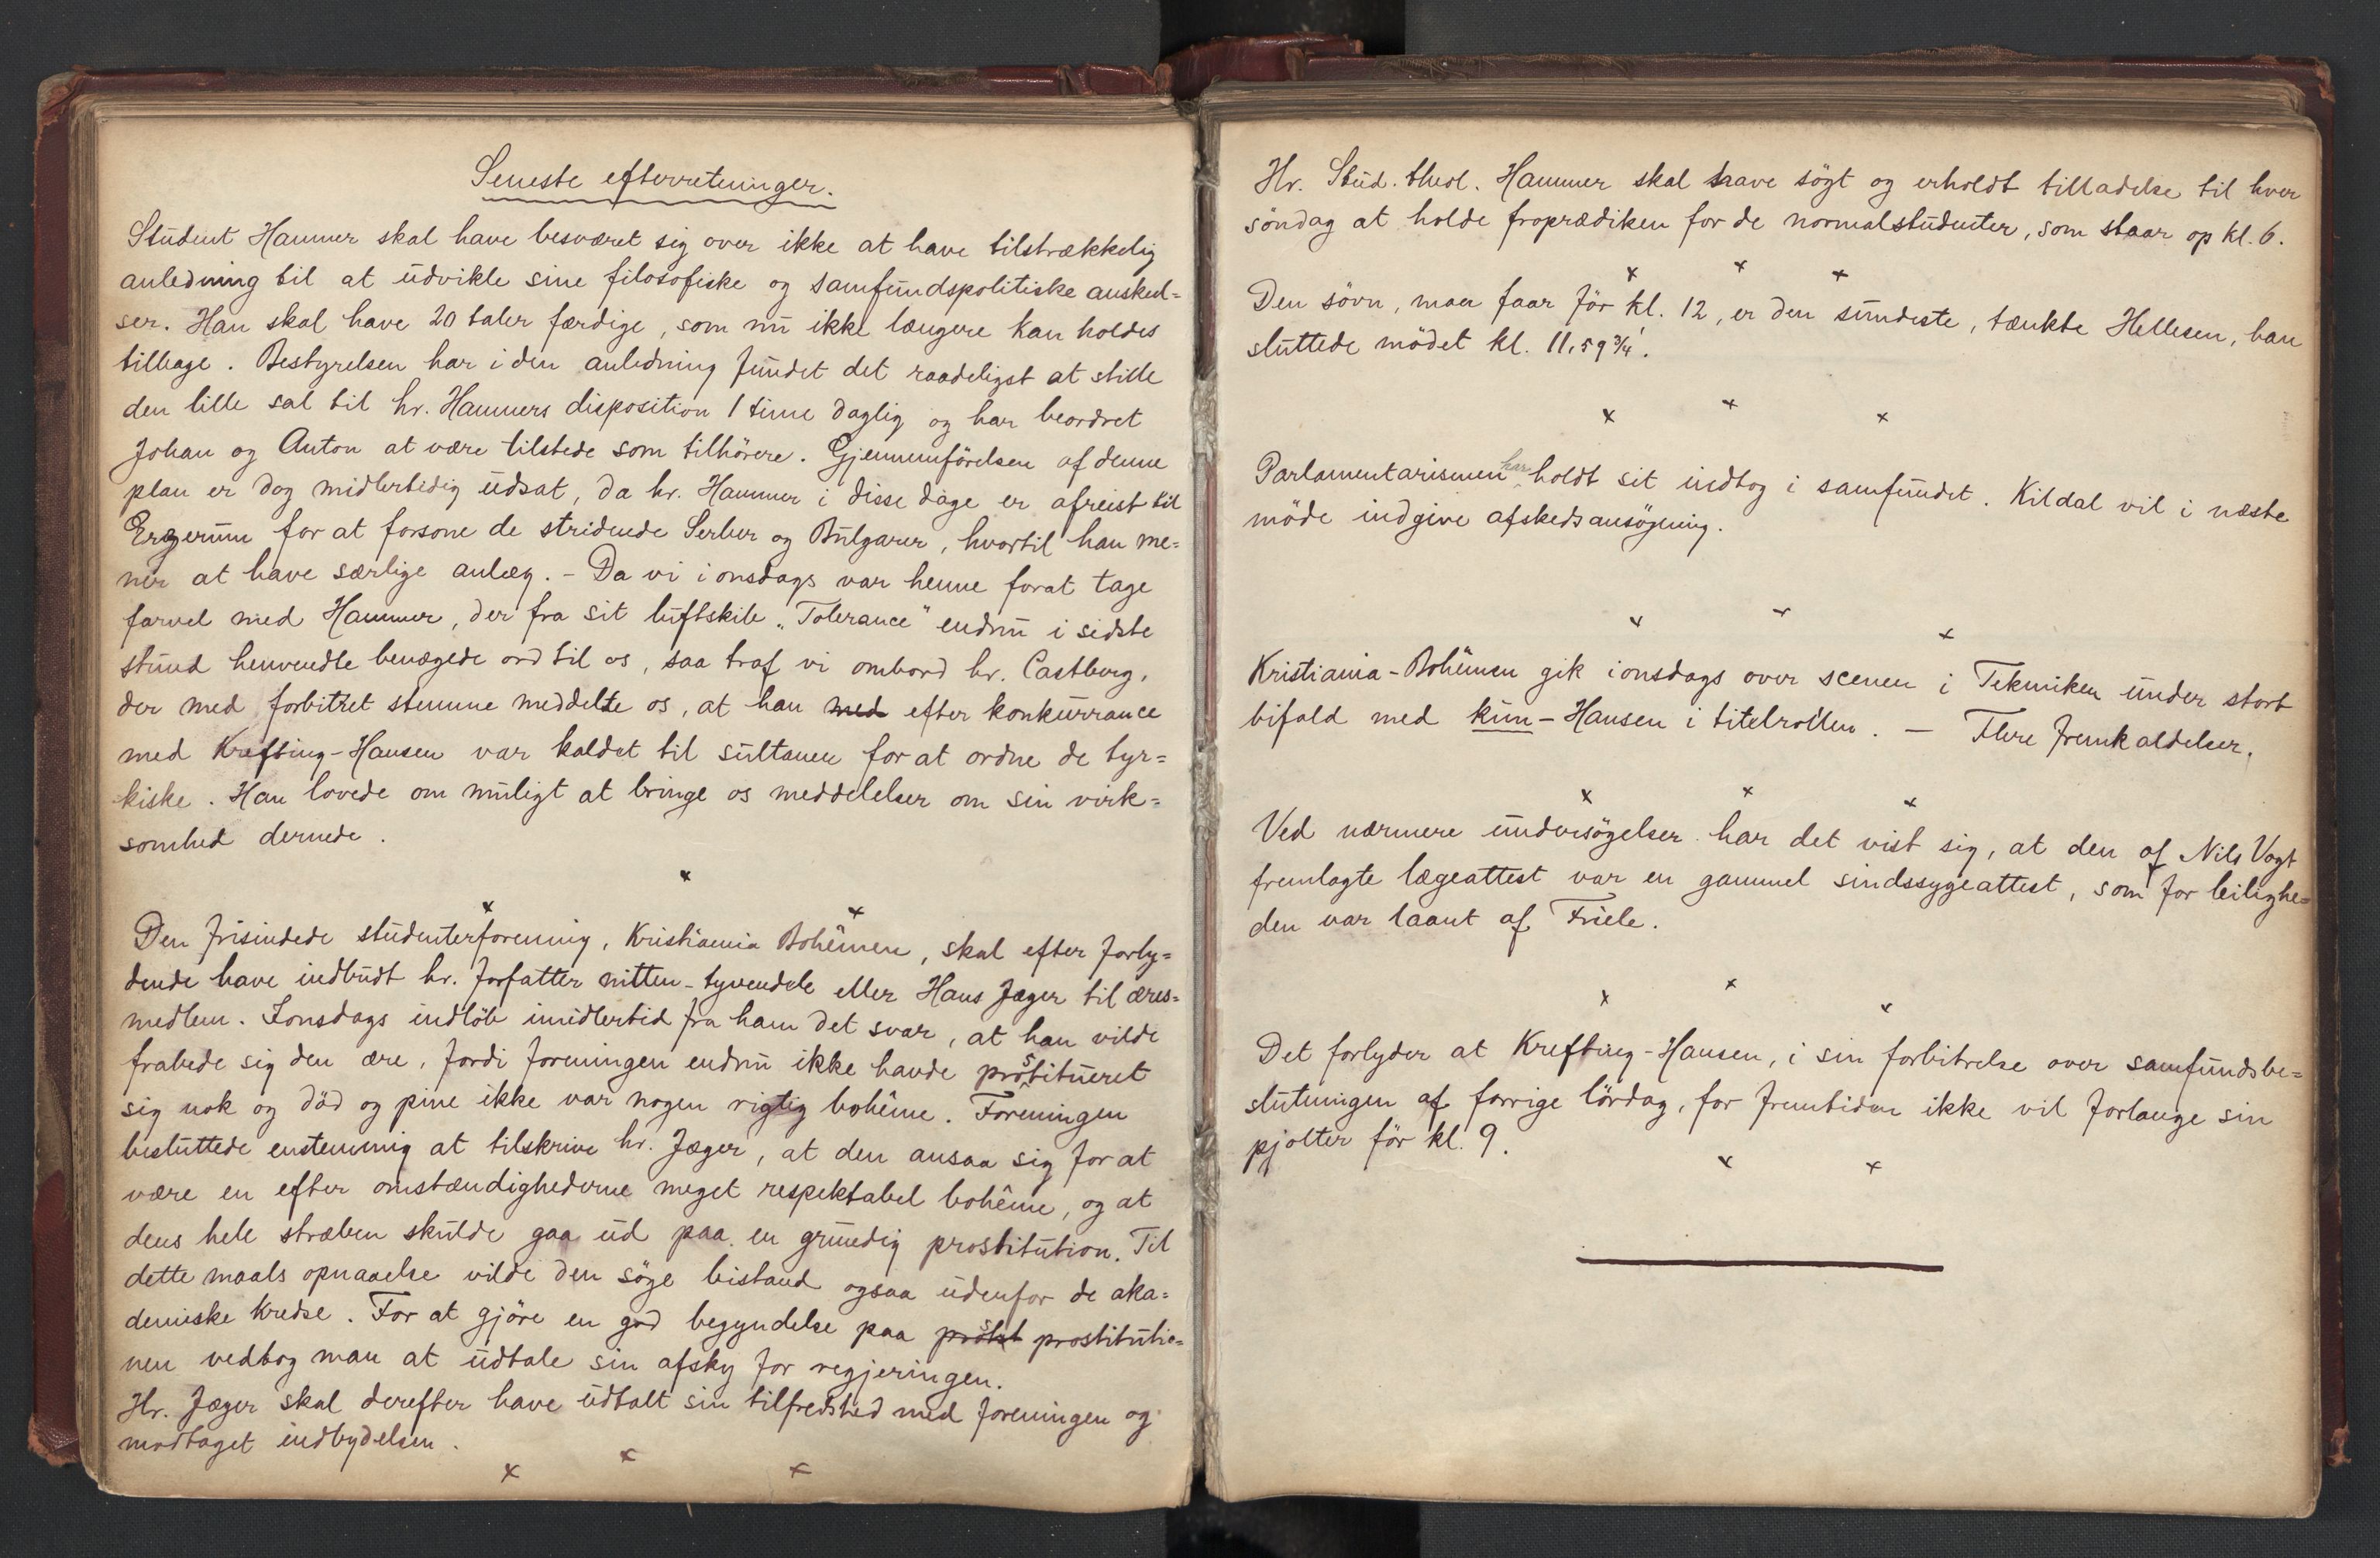 Seneste efterretninger.
Student Hammer skal have besværet sig over ikke at have tilstrækkelig
anledning til at udvikle sine filosofiske og samfundspolitiske anskuel=
ser. Han skal have 20 taler færdige, som nu ikke længere kan holdes
tilbage. Bestyrelsen har i den anledning fundet det raadeligst at stille
den lille sal til hr. Hammers disposition 1 time daglig og har beordret
Johan og Anton at være tilstede som tilhörere. Gjennemförelsen af denne
plan er dog midlertidig udsat, da hr. Hammer i disse dage er afreist til
Erzerum for at forsone de stridende Serber og Bulgarer, hvortil han me=
ner at have særlige anlæg. - Da vi i onsdags var henne forat tage
farvel med Hammer, der fra sit luftskib „Tolerance" endnu i sidste
stund henvendte bevægede ord til os, saa traf vi ombord hr. Castberg,
der med forbitret stemme meddelte os, at han med efter konkurrance
med Krefting-Hansen var kaldet til sultanen for at ordne de tyr=
kiske. Han lovede om muligt at bringe os meddelelser om sin virk=
somhed dernede.
x
x x
Den frisindede studenterforening, Kristiania Bohêmen, skal efter forly=
dende have indbudt hr. forfatter nitten-tyvendele eller Hans Jæger til æres=
medlem. Ionsdags indlöb imidlertid fra ham det svar, at han vilde
frabede sig den ære, fordi foreningen endnu ikke havde prostitueret
sig nok og död og pine ikke var nogen rigtig bohême. Foreningen
besluttede enstemmig at tilskrive hr. Jæger, at den ansaa sig for at
være en efter omstændighederne meget respektabel bohême, og at
dens hele stræben skulde gaa ud paa en grundig prostitution. Til
dette maals opnaaelse vilde den söge bistand ogsaa udenfor de aka=
demiske kredse. For at gjöre en god begyndelse paa prostitutio=
nen vedtog man at udtale sin afsky for regjeringen.
Hr. Jæger skal derefter have udtalt sin tilfredshed med foreningen og
modtaget indbydelsen.
x x x
Hr. Stud. theol. Hammer skal have sögt og erholdt tilladelse til hver
söndag at holde froprædiken for de normalstudenter, som staar op kl. 6.
x x x
Den sövn, man faar för kl. 12, er den sundeste, tænkte Hellesen, han
sluttede mödet kl. 11,59¾'.
x x x
Parlamentarismen har holdt sit indtog i samfundet. Kildal vil i næste
möde indgive afskedsansögning.
x x x
Kristiania-Bohêmen gik ionsdags over scenen i Tekniken under stort
bifald med kun-Hansen i titelrollen. — Flere fremkaldelser.
x x x
Ved nærmere undersögelser har det vist sig, at den af Nils Vogt
fremlagte lægeattest var en gammel sindssygeattest, som for leilighe=
den var laant af Friele.
x x x
Det forlyder at Krefting-Hansen, i sin forbitrelse over samfundsbe=
slutningen af forrige lördag, for fremtiden ikke vil forlange sin
pjolter för kl. 9.
x x